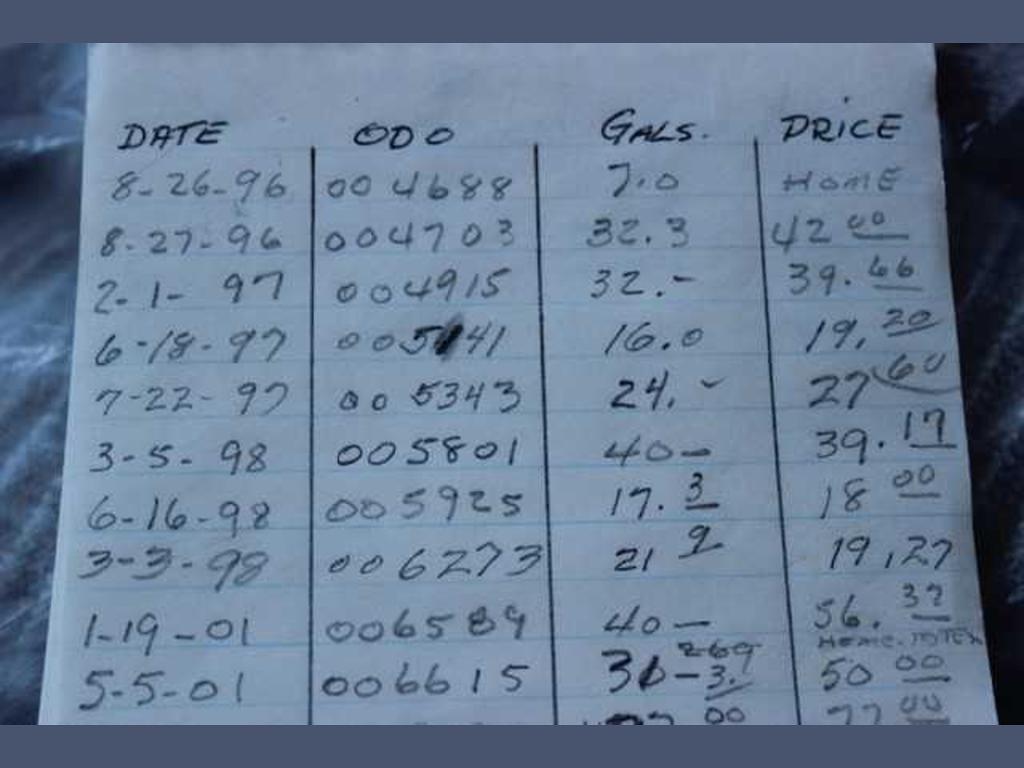 DATE ODO GALS. PRICE
8-26-96 004688 7.0 HOME
8-27-96 004703 32.3 42 00
2-1-97 004915 32.- 39.66
6-18-97 005141 16.0 19.20
7-22-97 005343 24.- 27 60
3-5-98 005801 40- 39.17
6-16-98 005925 17.3 18 00
3-3-98 006273 21 9 19,27
1-19-01 006589 40- 56.37
HOME. TO TEX
5-5-01 006615 31-3. 269 50 00
00 77 00